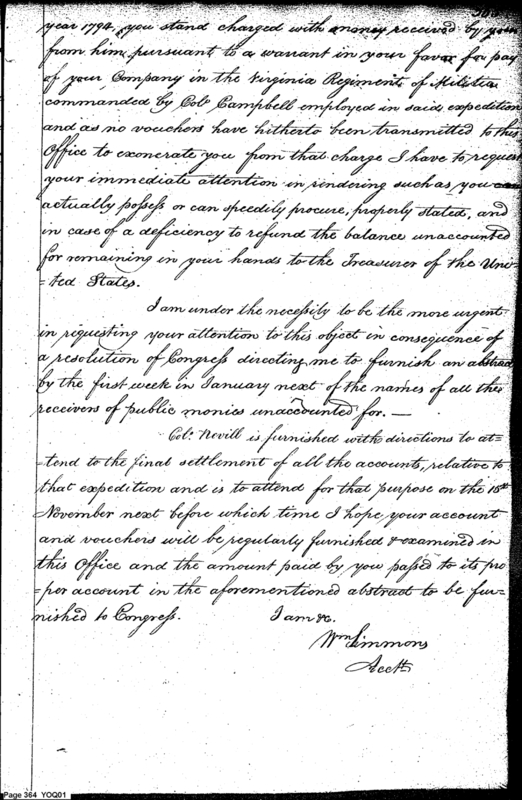 year 1794, you stand charged with money received by you
from him pursuant to a warrant in your favor for pay
of your Company in the Virginia Regiments of Militia
commanded by Colo. Campbell employed in said expedition
and as no vouchers have hitherto been transmitted to this
Office to exonerate you from that charge I have to request
your immediate attention in rendering such as you can
actually possess or can speedily procure, properly stated, and
in case of a deficiency to refund the balance unaccounted
for remaining in your hands to the Treasurer of the Uni-
-ted States.
I am under the necessity to be the more urgent
in requesting your attention to this object in consequence of
a resolution of Congress directing me to furnish an abstract
by the first week in January next of the names of all the
receivers of public monies unaccounted for. —
Colo. Nevill is furnished with directions to at-
-tend to the final settlement of all the accounts, relative to
that expedition and is to attend for that purpose on the 15th
November next before which time I hope your account
and vouchers will be regularly furnished & examined in
this Office and the amount paid by you passed to its pro-
-per account in the aforementioned abstract to be fur-
nished to Congress. I am &c.
Wm Simmons
Acctt
Page 364 YOQ01